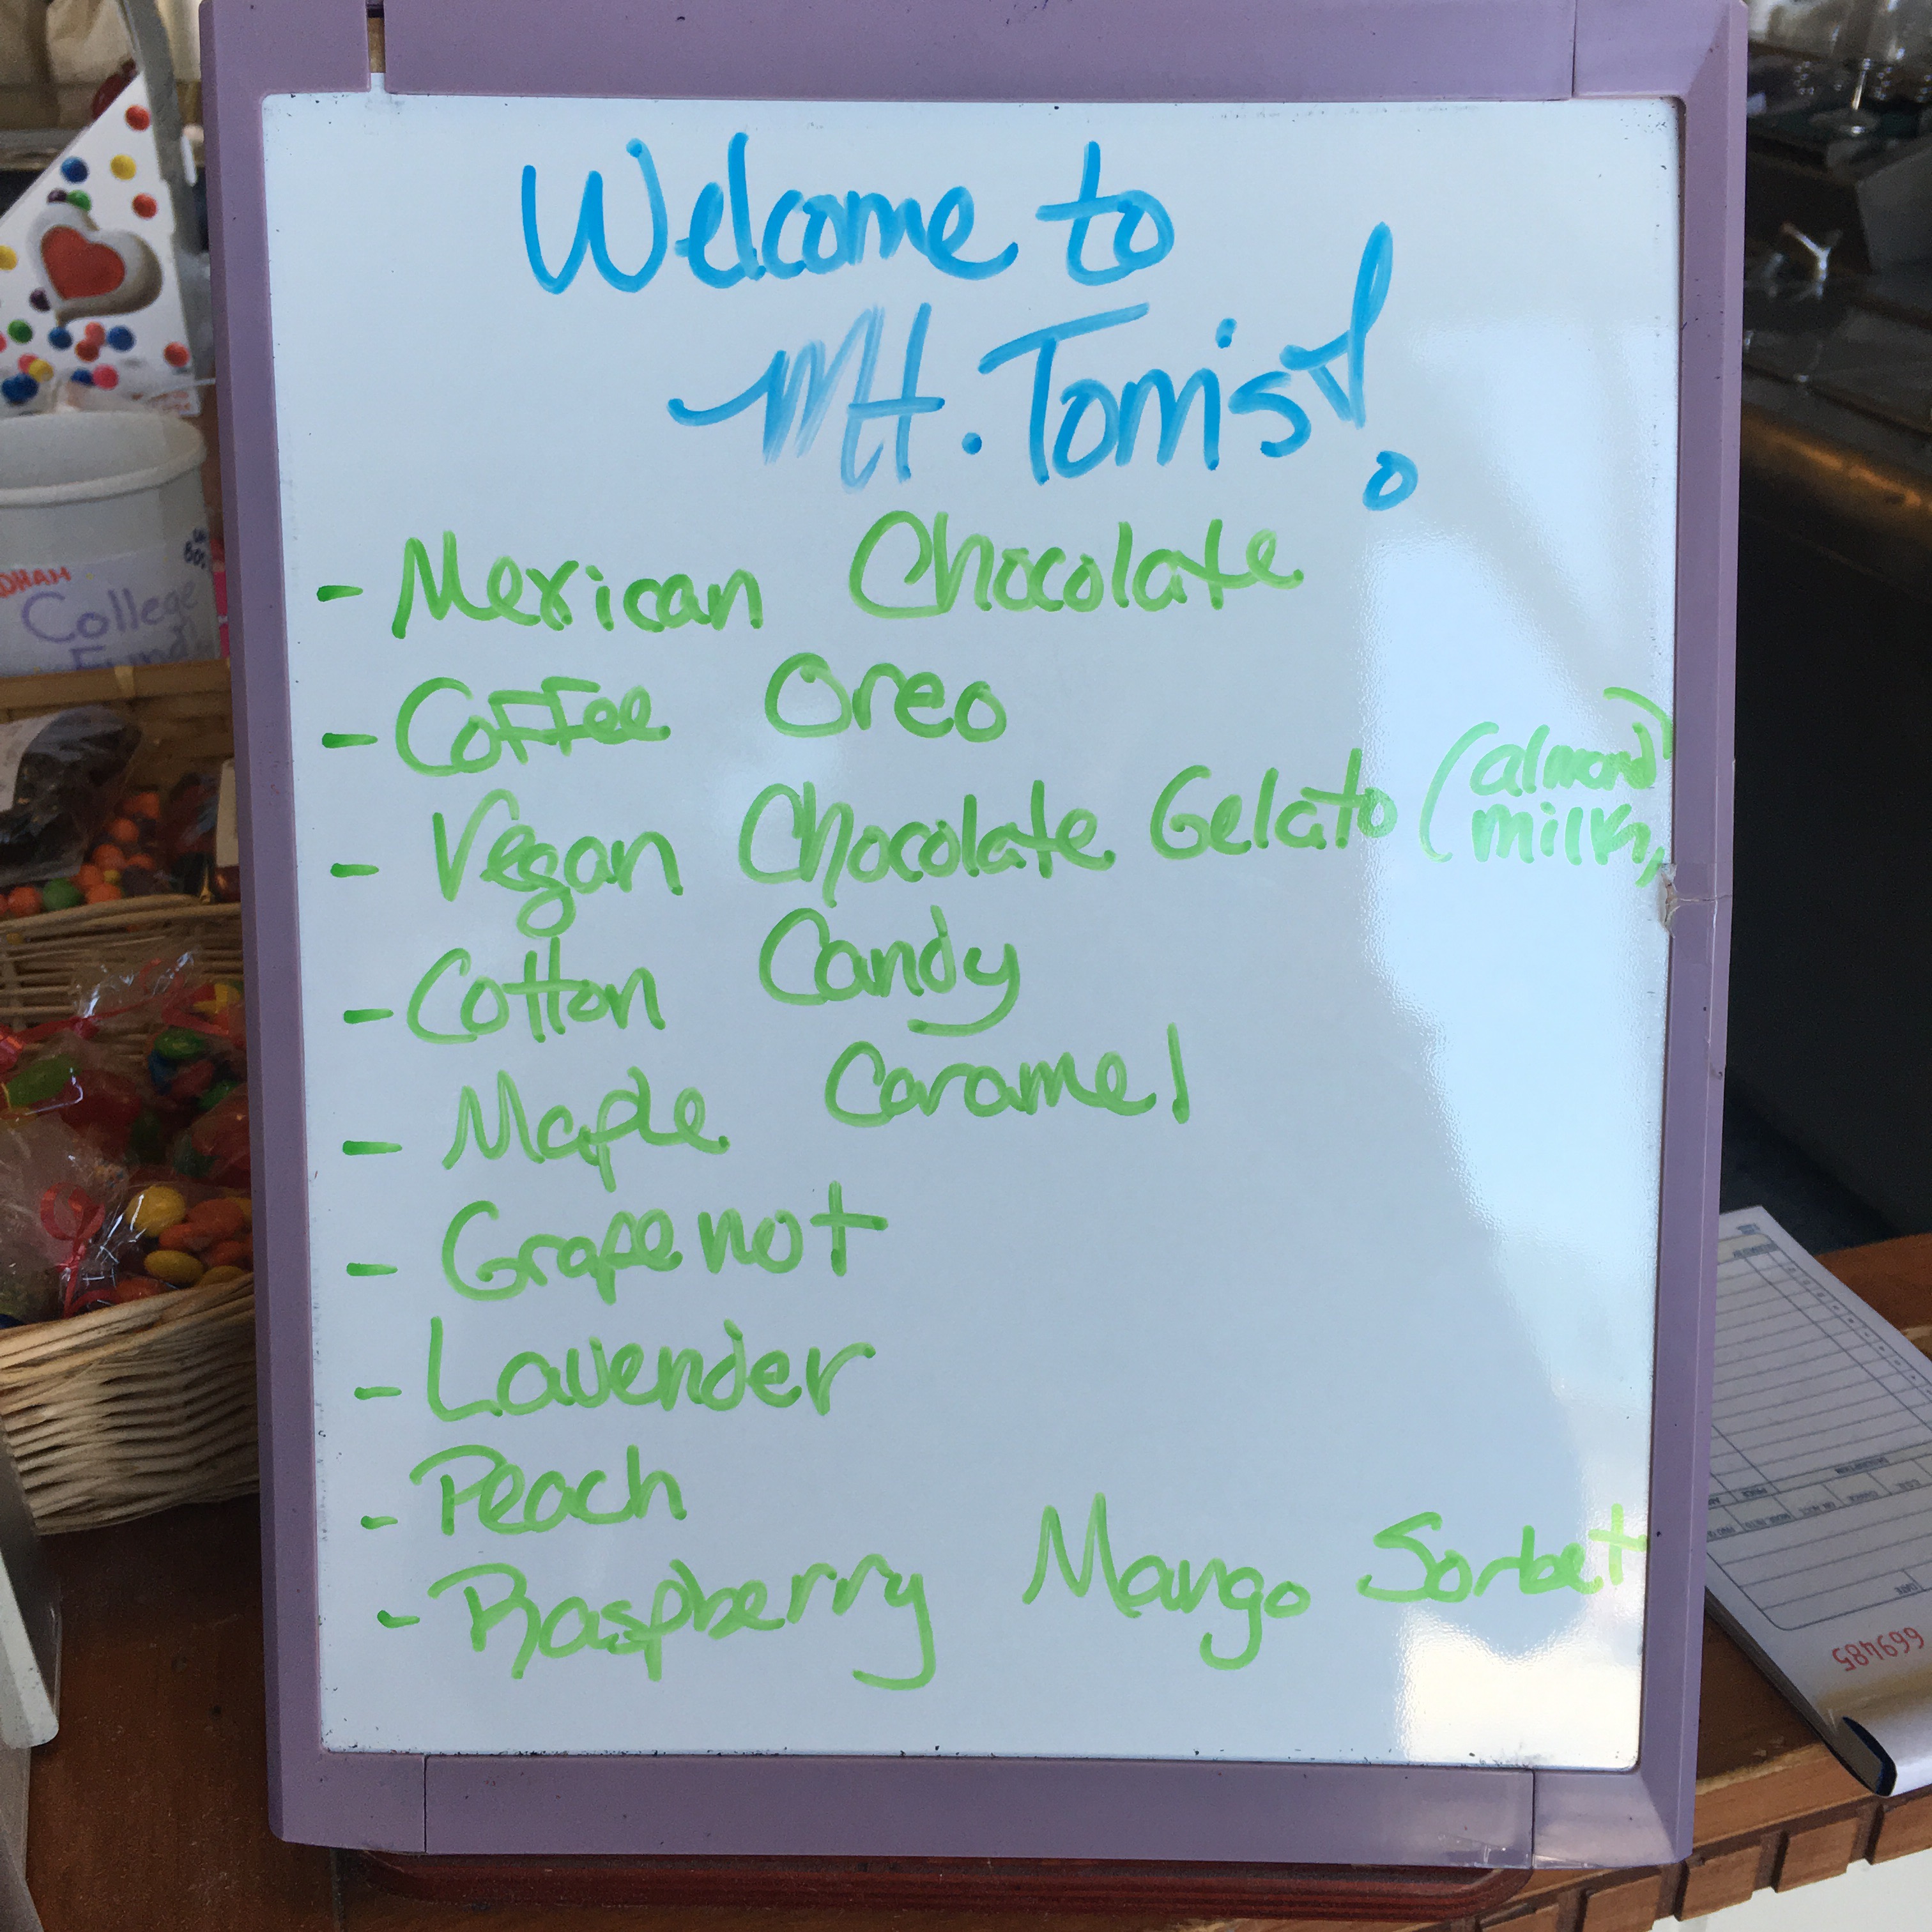 Welcome to
Mt. Tom's!
- Mexican Chocolate
- Coffee Oreo
- Vegan Chocolate Gelato (almond milk)
- Cotton Candy
- Maple Caramel
- Grapenot
- Lavender
- Peach
- Raspberry Mango Sorbet
College
Fund
669485